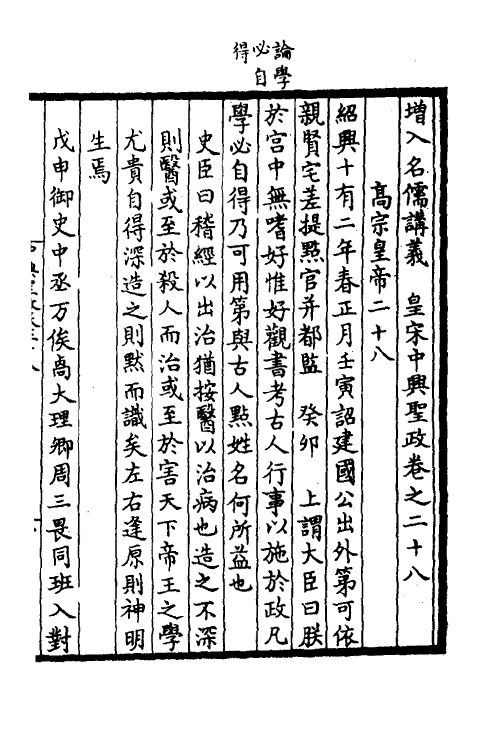 論學
必自
得
增入名儒講義　皇宋中興聖政卷之二十八
高宗皇帝二十八
紹興十有二年春正月壬寅詔建國公出外第可依
親賢宅差提㸃官并都監　癸卯　上謂大臣曰朕
於宫中無嗜好惟好觀書考古人行事以施於政凡
學必自得乃可用第與古人㸃姓名何所益也
史臣曰稽經以出治猶按醫以治病也造之不深
則醫或至於殺人而治或至於害天下帝王之學
尤貴自得深造之則默而識矣左右逢原則神明
生焉
戊申御史中丞万俟卨大理卿周三畏同班入對